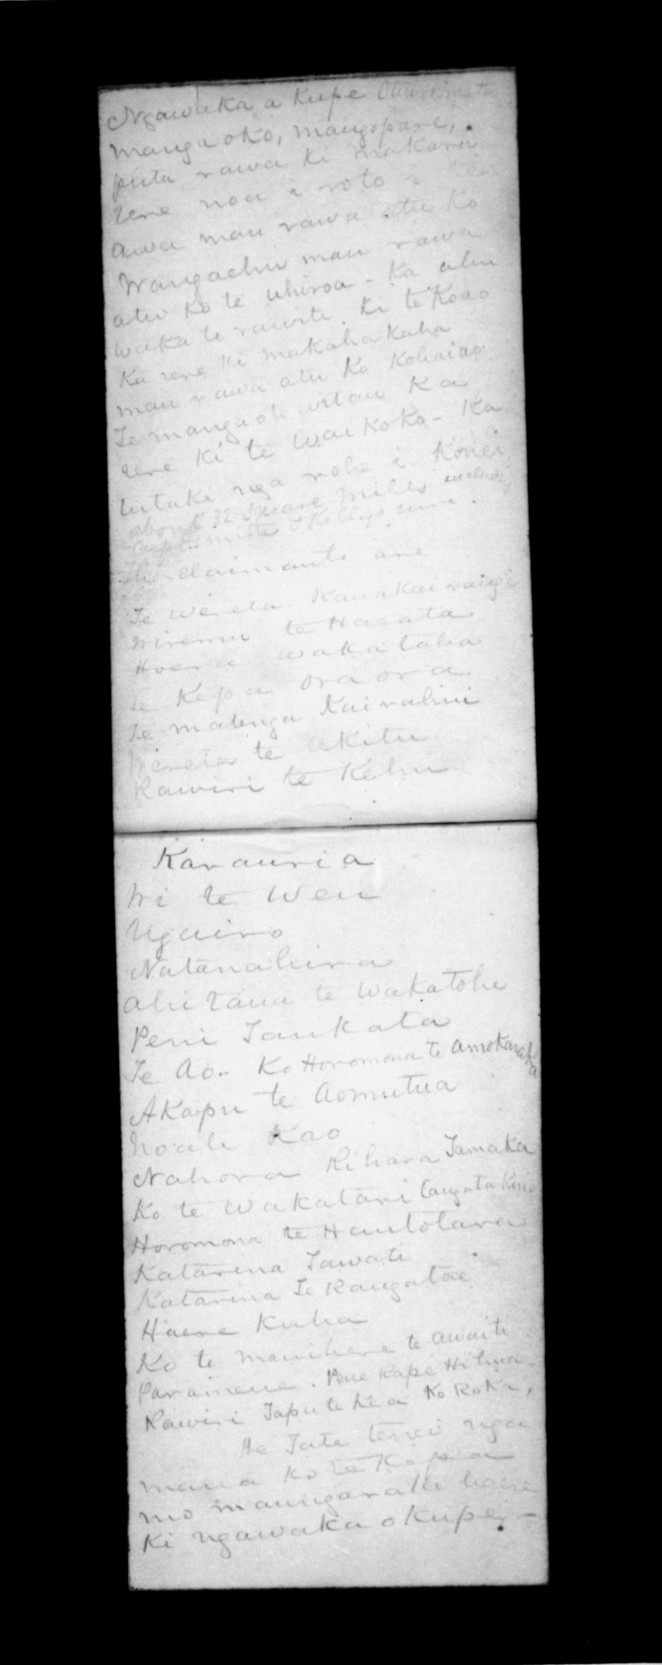 Ngawaka a Kupe
mangaoko, mangopare,
puta rawa ki makara
rere noa i roto i
awa mau rawa atu ko
Wangaehu mau rawa
atu ko te uhiroa - Ka ahu
waka te rawiti. Ki te Koao
Ka rere ki makahakaha
mau rawa atu Ko Kohaiao
Te mangaote witau Ka
rere Ki te Wai Koko - Ka
tutuki nga rohe i Konei
about 32 Square miles including
Capt Smiths & Kellys
The claimants are
Te Wereta Kawakairangi
Wiremu te Haeata
Hoera wakataha
te Kepa oraora
Te matenga Kairahui
Wereta te akitu
Rawiri te Kehu
Karauria
Wi te Weu
Ngairo
Natanahira
ahitana te Wakatohe
Peni Taukata
Te Ao - Ko Horomona te
AKapu te Aomutua
Noah Kao
Nahora Rihara Tamaka
Ko te Wakatari
Horomona te Hautotara
Katarina Tawati
Katarina Te Rangatae
Haere Kuha
Ko te manihera te awaiti
Paramena. Pene Rape Hi
Rawiri Taputekea Ko Roka,
He Tate tenei nga
mana ko te Kepa
mo maungaraki haere
Ki ngawaka o Kupe -